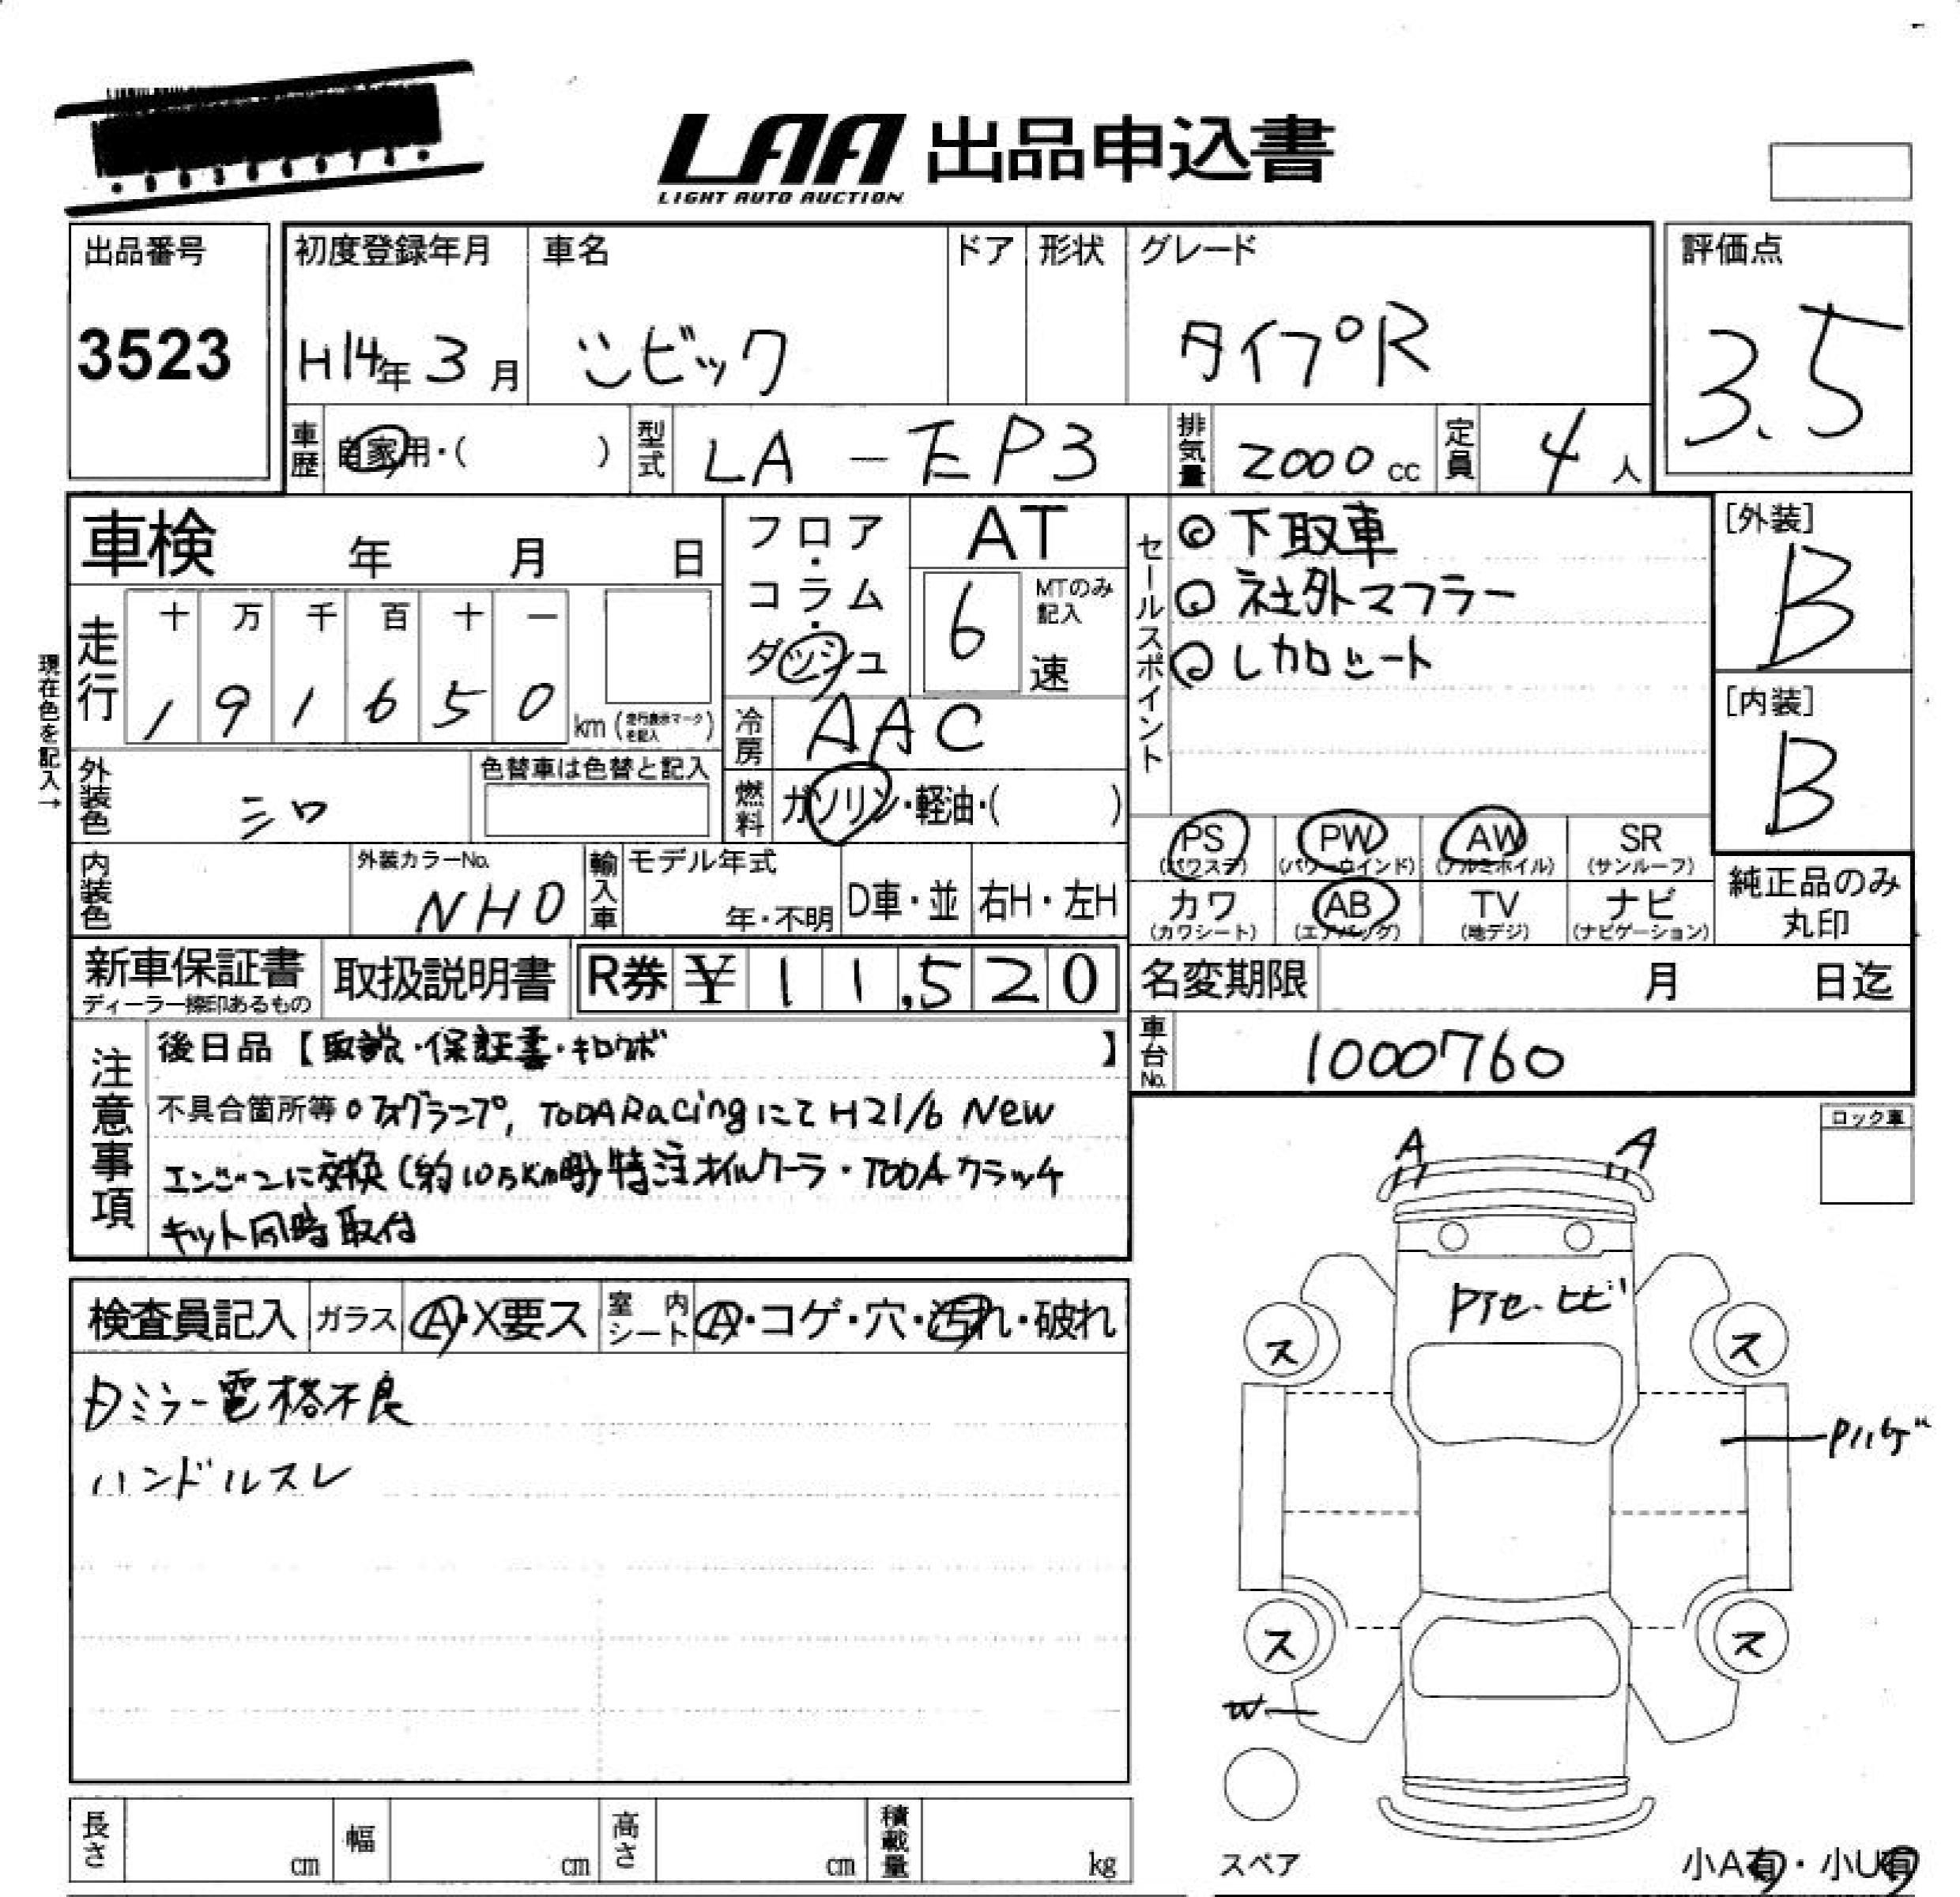 LAA 出品申込書
LIGHT AUTO AUCTION
出品番号
3523
初度登録年月
H14年 3月
車名
シビック
ドア
形状
グレード
タイプR
評価点
3.5
車歴
自家用・( )
型式
LA-EP3
排気量
2000 cc
定員
4人
車検 年 月 日
走行
十 万 千 百 十 一
1 9 1 6 5 0 km (走行表示マークを記入)
現在色を記入→
外装色
シロ
色替車は色替と記入
内装色
外装カラーNo.
NH0
フロア・コラム・ダッシュ
AT
6 速
MTのみ記入
冷房
AAC
燃料
ガソリン・軽油・( )
輸入車
モデル年式
年・不明
D車・並
右H・左H
セールスポイント
◎下取車
◎社外マフラー
◎レカロシート
[外装]
B
[内装]
B
PS (パワステ)
PW (パワーウインド)
AW (アルミホイル)
SR (サンルーフ)
カワ (カワシート)
AB (エアバッグ)
TV (地デジ)
ナビ (ナビゲーション)
純正品のみ丸印
新車保証書
ディーラー捺印あるもの
取扱説明書
R券 ¥11,520
名変期限 月 日迄
車台No.
1000760
注意事項
後日品【取説・保証書・キロクボ】
不具合箇所等 ○フォグランプ, TODA RacingにてH21/6 New
エンジンに交換 特注オイルクーラ・TODAクラッチ
キット同時取付
ロック車
A A
Pアセ・ヒビ
ス ス
Pハゲ
ス ス
W
スペア
小A有・小U有
検査員記入
ガラス
A・X要ス
室内シート
A・コゲ・穴・汚れ・破れ
ミラー電格不良
ハンドルスレ
長さ cm
幅 cm
高さ cm
積載量 kg